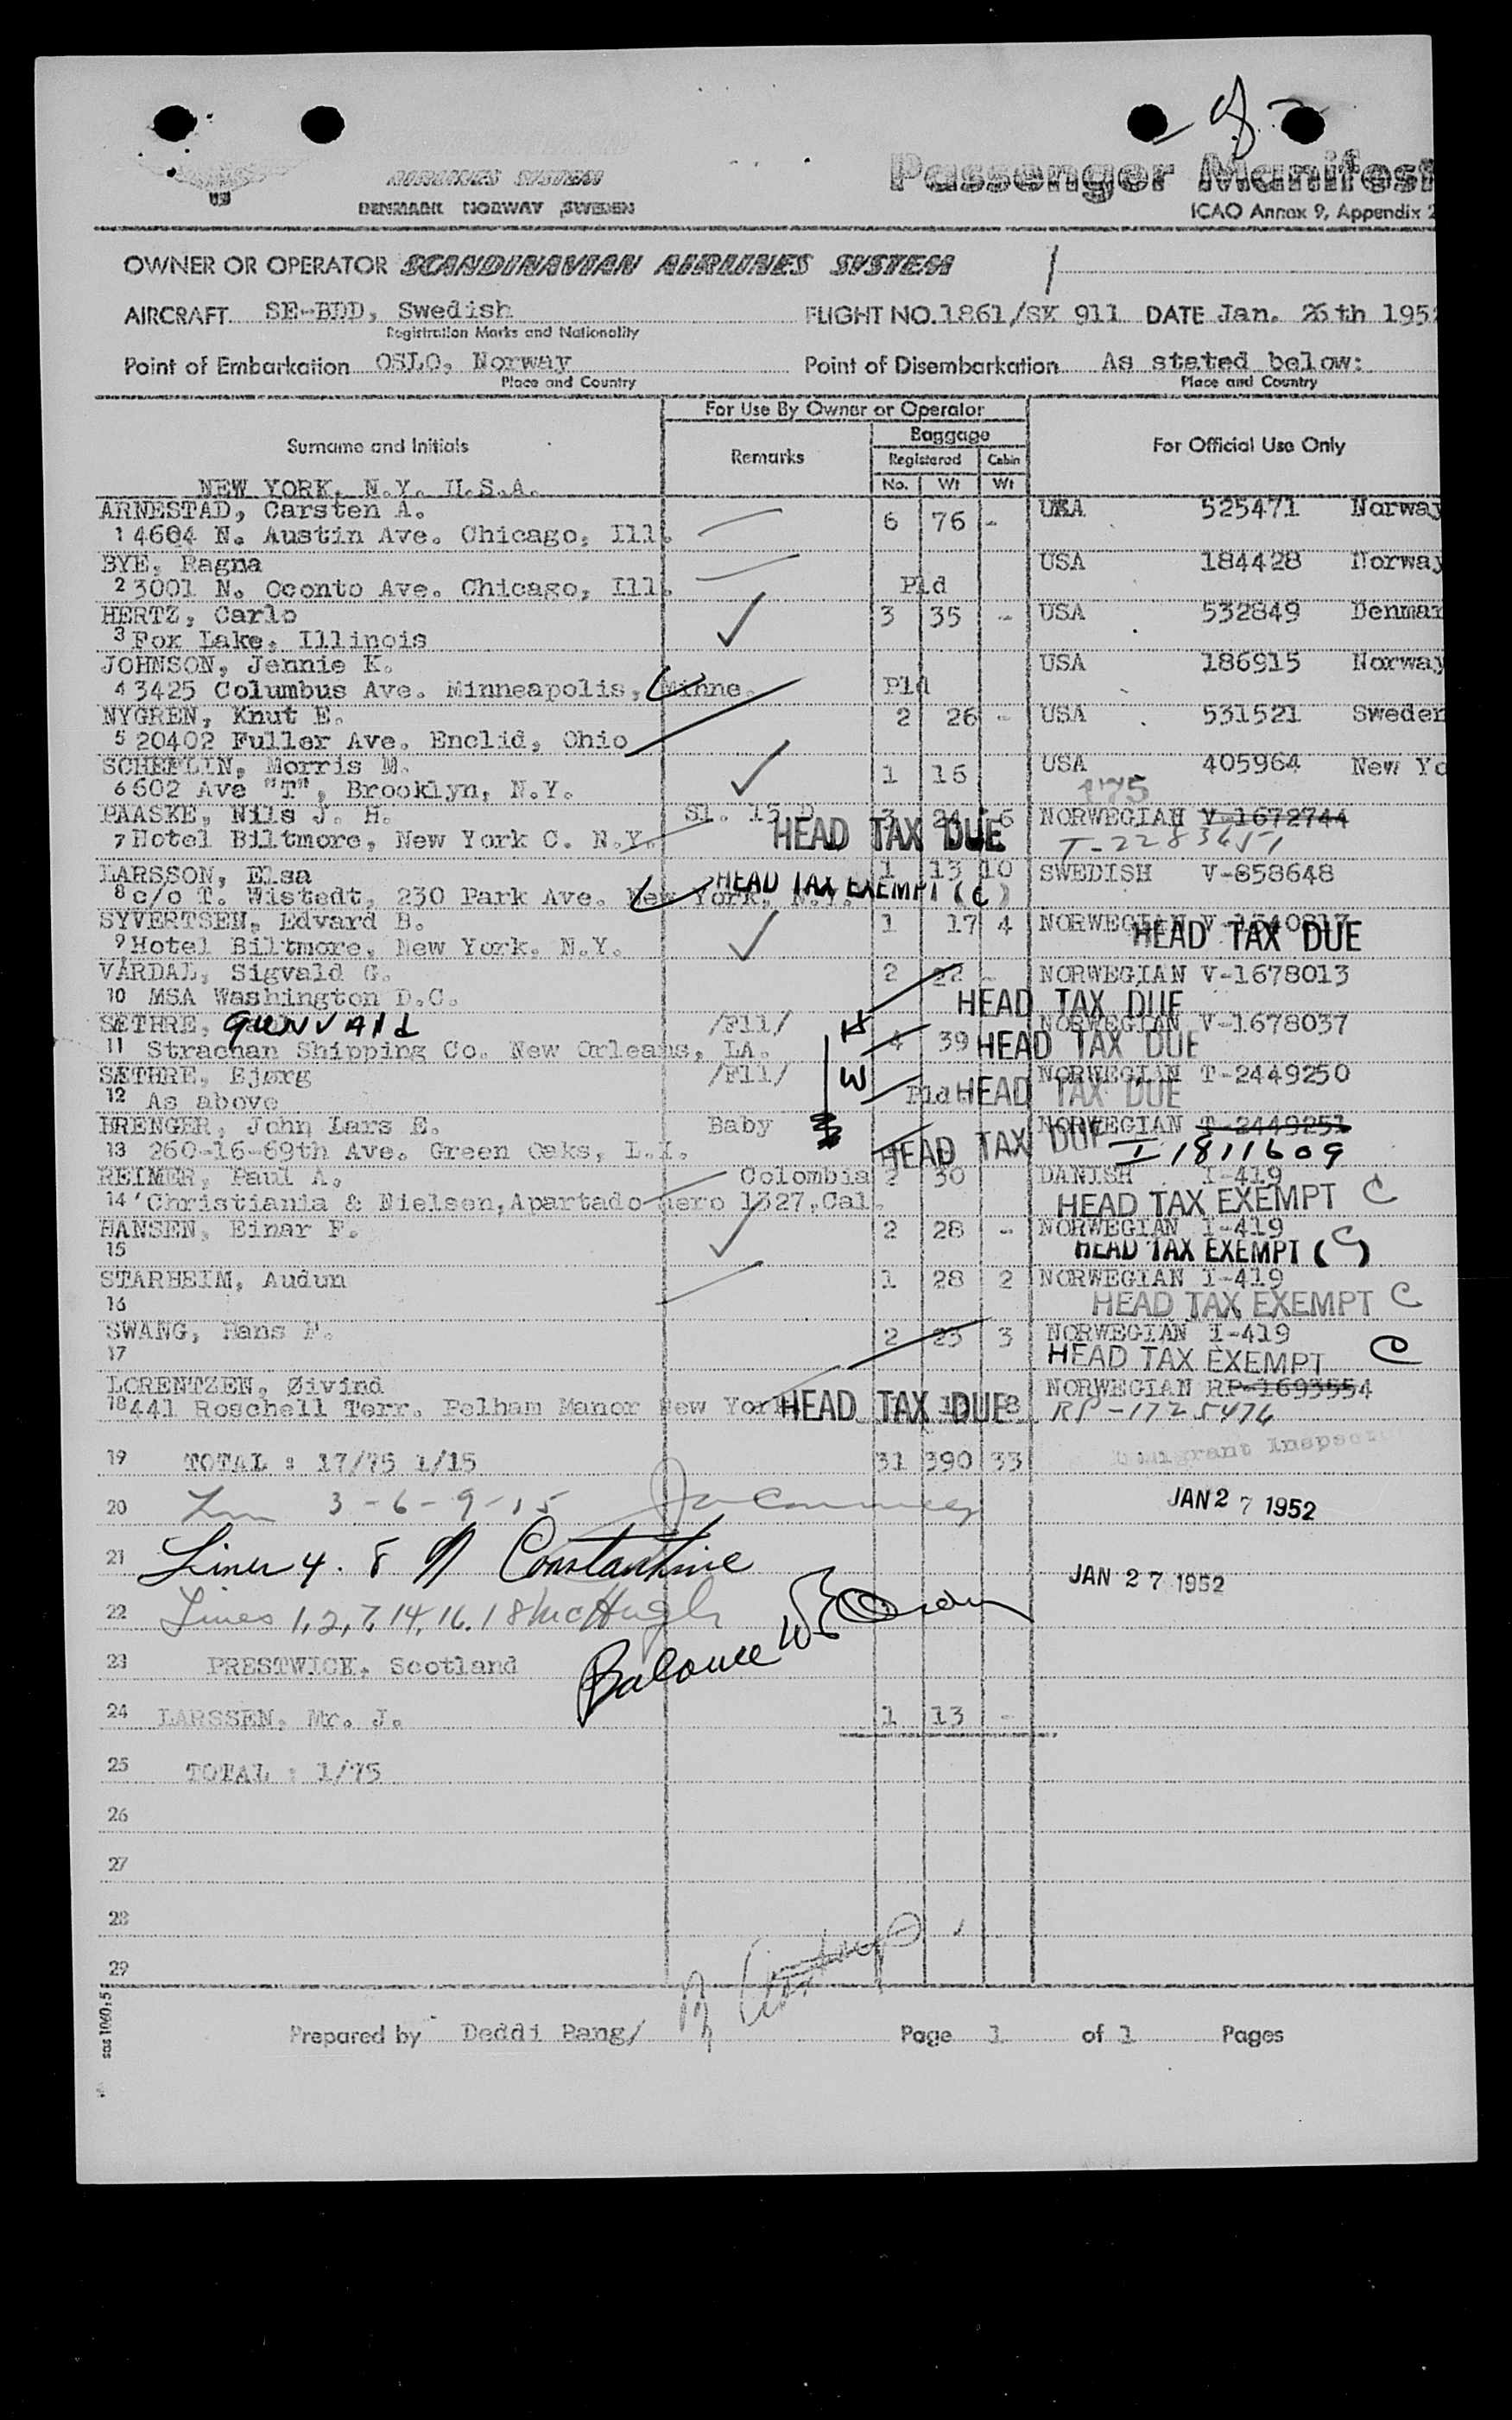 AIRLINES SYSTEM
DENMARK NORWAY SWEDEN
Passenger Manifest
ICAO Annex 9, Appendix 2
OWNER OR OPERATOR SCANDINAVIAN AIRLINES SYSTEM 1
AIRCRAFT SE-BDD, Swedish FLIGHT NO. 1861/SK 911 DATE Jan. 26th 195
Registration Marks and Nationality
Point of Embarkation OSLO, Norway Point of Disembarkation As stated below:
Place and Country Place and Country
For Use By Owner or Operator
Surname and Initials Remarks Baggage For Official Use Only
Registered Cabin
No. Wt Wt
NEW YORK, N.Y. U.S.A.
ARNESTAD, Carsten A. 6 76 - USA 525471 Norway
1 4604 N. Austin Ave. Chicago, Ill.
BYE, Ragna USA 184428 Norway
2 3001 N. Oconto Ave. Chicago, Ill. Pld
HERTZ, Carlo 3 35 - USA 532849 Denmar
3 Fox Lake, Illinois
JOHNSON, Jennie K. USA 186915 Norway
4 3425 Columbus Ave. Minneapolis, Minne. Pld
NYGREN, Knut E. 2 26 - USA 531521 Sweden
5 20402 Fuller Ave. Enclid, Ohio
SCHEFLIN, Morris M. 1 16 USA 405964 New Yo
6 602 Ave "T", Brooklyn, N.Y. 175
PAASKE, Nils J. H. Sl. 15 D 3 24 6 NORWEGIAN V-1672744
7 Hotel Biltmore, New York C. N.Y. HEAD TAX DUE
LARSSON, Elsa 1 13 10 SWEDISH V-858648
8 c/o T. Wistedt, 230 Park Ave. New York, N.Y. HEAD TAX EXEMPT (C)
SYVERTSEN, Edvard B. 1 17 4 NORWEGIAN
9 Hotel Biltmore, New York, N.Y. HEAD TAX DUE
VÅRDAL, Sigvald G. 2 22 - NORWEGIAN V-1678013
10 MSA Washington D.C. HEAD TAX DUE
SÆTHRE, GUNVALD /Fll/ NORWEGIAN V-1678037
11 Strachan Shipping Co. New Orleans, LA. 4 39 HEAD TAX DUE
SÆTHRE, Bjørg /Fll/ W NORWEGIAN T-2449250
12 As above Pld HEAD TAX DUE
BRENGER, John Lars E. Baby NORWEGIAN T-2449251
13 260-16-69th Ave. Green Oaks, L.I. HEAD TAX DUE I 1811609
REIMER, Paul A. Colombia 2 30 DANISH I-419
14 Christiania & Nielsen, Apartado aero 1327, Cal. HEAD TAX EXEMPT C
HANSEN, Einar F. 2 28 - NORWEGIAN I-419
15 HEAD TAX EXEMPT (C)
STARHEIM, Audun 1 28 2 NORWEGIAN I-419
16 HEAD TAX EXEMPT C
SWANG, Hans F. 2 23 3 NORWEGIAN I-419
17 HEAD TAX EXEMPT C
LORENTZEN, Øivind NORWEGIAN RP-1693554
18 441 Roschell Terr. Pelham Manor New York HEAD TAX DUE 8 RP-1725476
19 TOTAL : 17/75 1/15 31 390 33 Immigrant Inspector
20 3-6-9-15 JAN 27 1952
21 Lines 4. 8 Constantine JAN 27 1952
22 Lines 1, 2, 7, 14, 16, 18 McHugh
Balance
23 PRESTWICK, Scotland
24 LARSSEN, Mr. J. 1 13 -
25 TOTAL : 1/75
26
27
28
29
sas 1060:5
Prepared by Deddi Pang/ Page 1 of 1 Pages